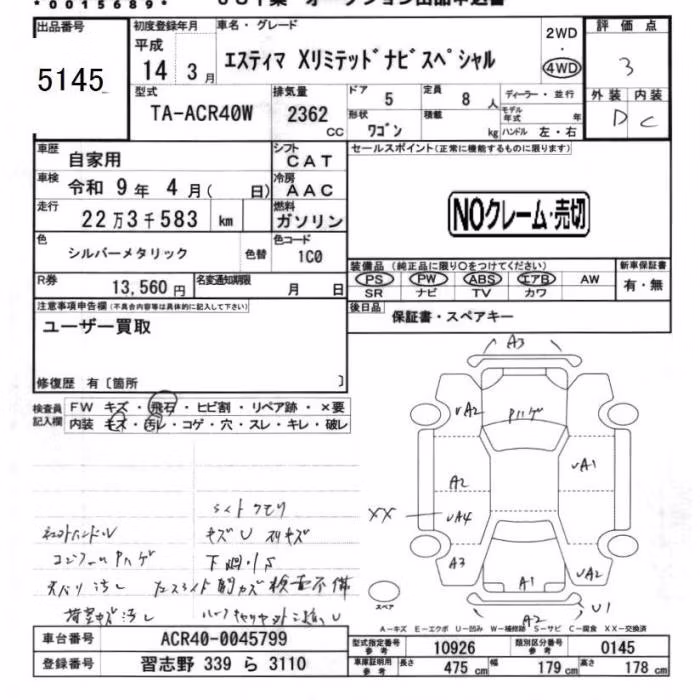 *0015689*
出品番号
5145
初度登録年月
平成
14 3月
車名・グレード
エスティマ Xリミテッドナビスペシャル
2WD
・
4WD
評価点
3
外装 内装
D C
型式
TA-ACR40W
排気量
2362
CC
ドア
5
定員
8人
ディーラー・並行
形状
ワゴン
積載
kg
モデル年式
年
ハンドル 左・右
車歴
自家用
シフト
CAT
セールスポイント(正常に機能するものに限ります)
車検
令和 9年 4月( 日)
冷房
AAC
走行
22万3千583 km
燃料
ガソリン
NOクレーム・売切
色
シルバーメタリック
色替
色コード
1C0
装備品 (純正品に限り○をつけてください)
PS PW ABS エアB AW
SR ナビ TV カワ
新車保証書
有・無
R券
13,560円
名変通知期限
月 日
後日品
保証書・スペアキー
注意事項申告欄(不具合内容等は具体的に記入して下さい)
ユーザー買取
修復歴 有〔箇所 〕
検査員記入欄
FW キズ・飛石・ヒビ割・リペア跡・×要
内装 キズ・汚レ・コゲ・穴・スレ・キレ・破レ
A3
UA2
Pハゲ
A2
UA1
XX
UA4
A3
A1
UA2
A2
U1
スペア
ライトクモリ
キズU
下廻りS
検査不備
A−キズ E−エクボ U−凹み W−補修跡 S−サビ C−腐食 XX−交換済
車台番号
ACR40-0045799
登録番号
習志野 339 ら 3110
型式指定番号
参考
10926
類別区分番号
参考
0145
車庫証明用
参考
長さ
475cm
幅
179cm
高さ
178cm